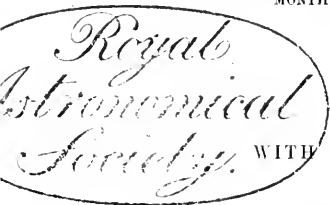 MONTH
Royal
Astronomical
Society.
WITH